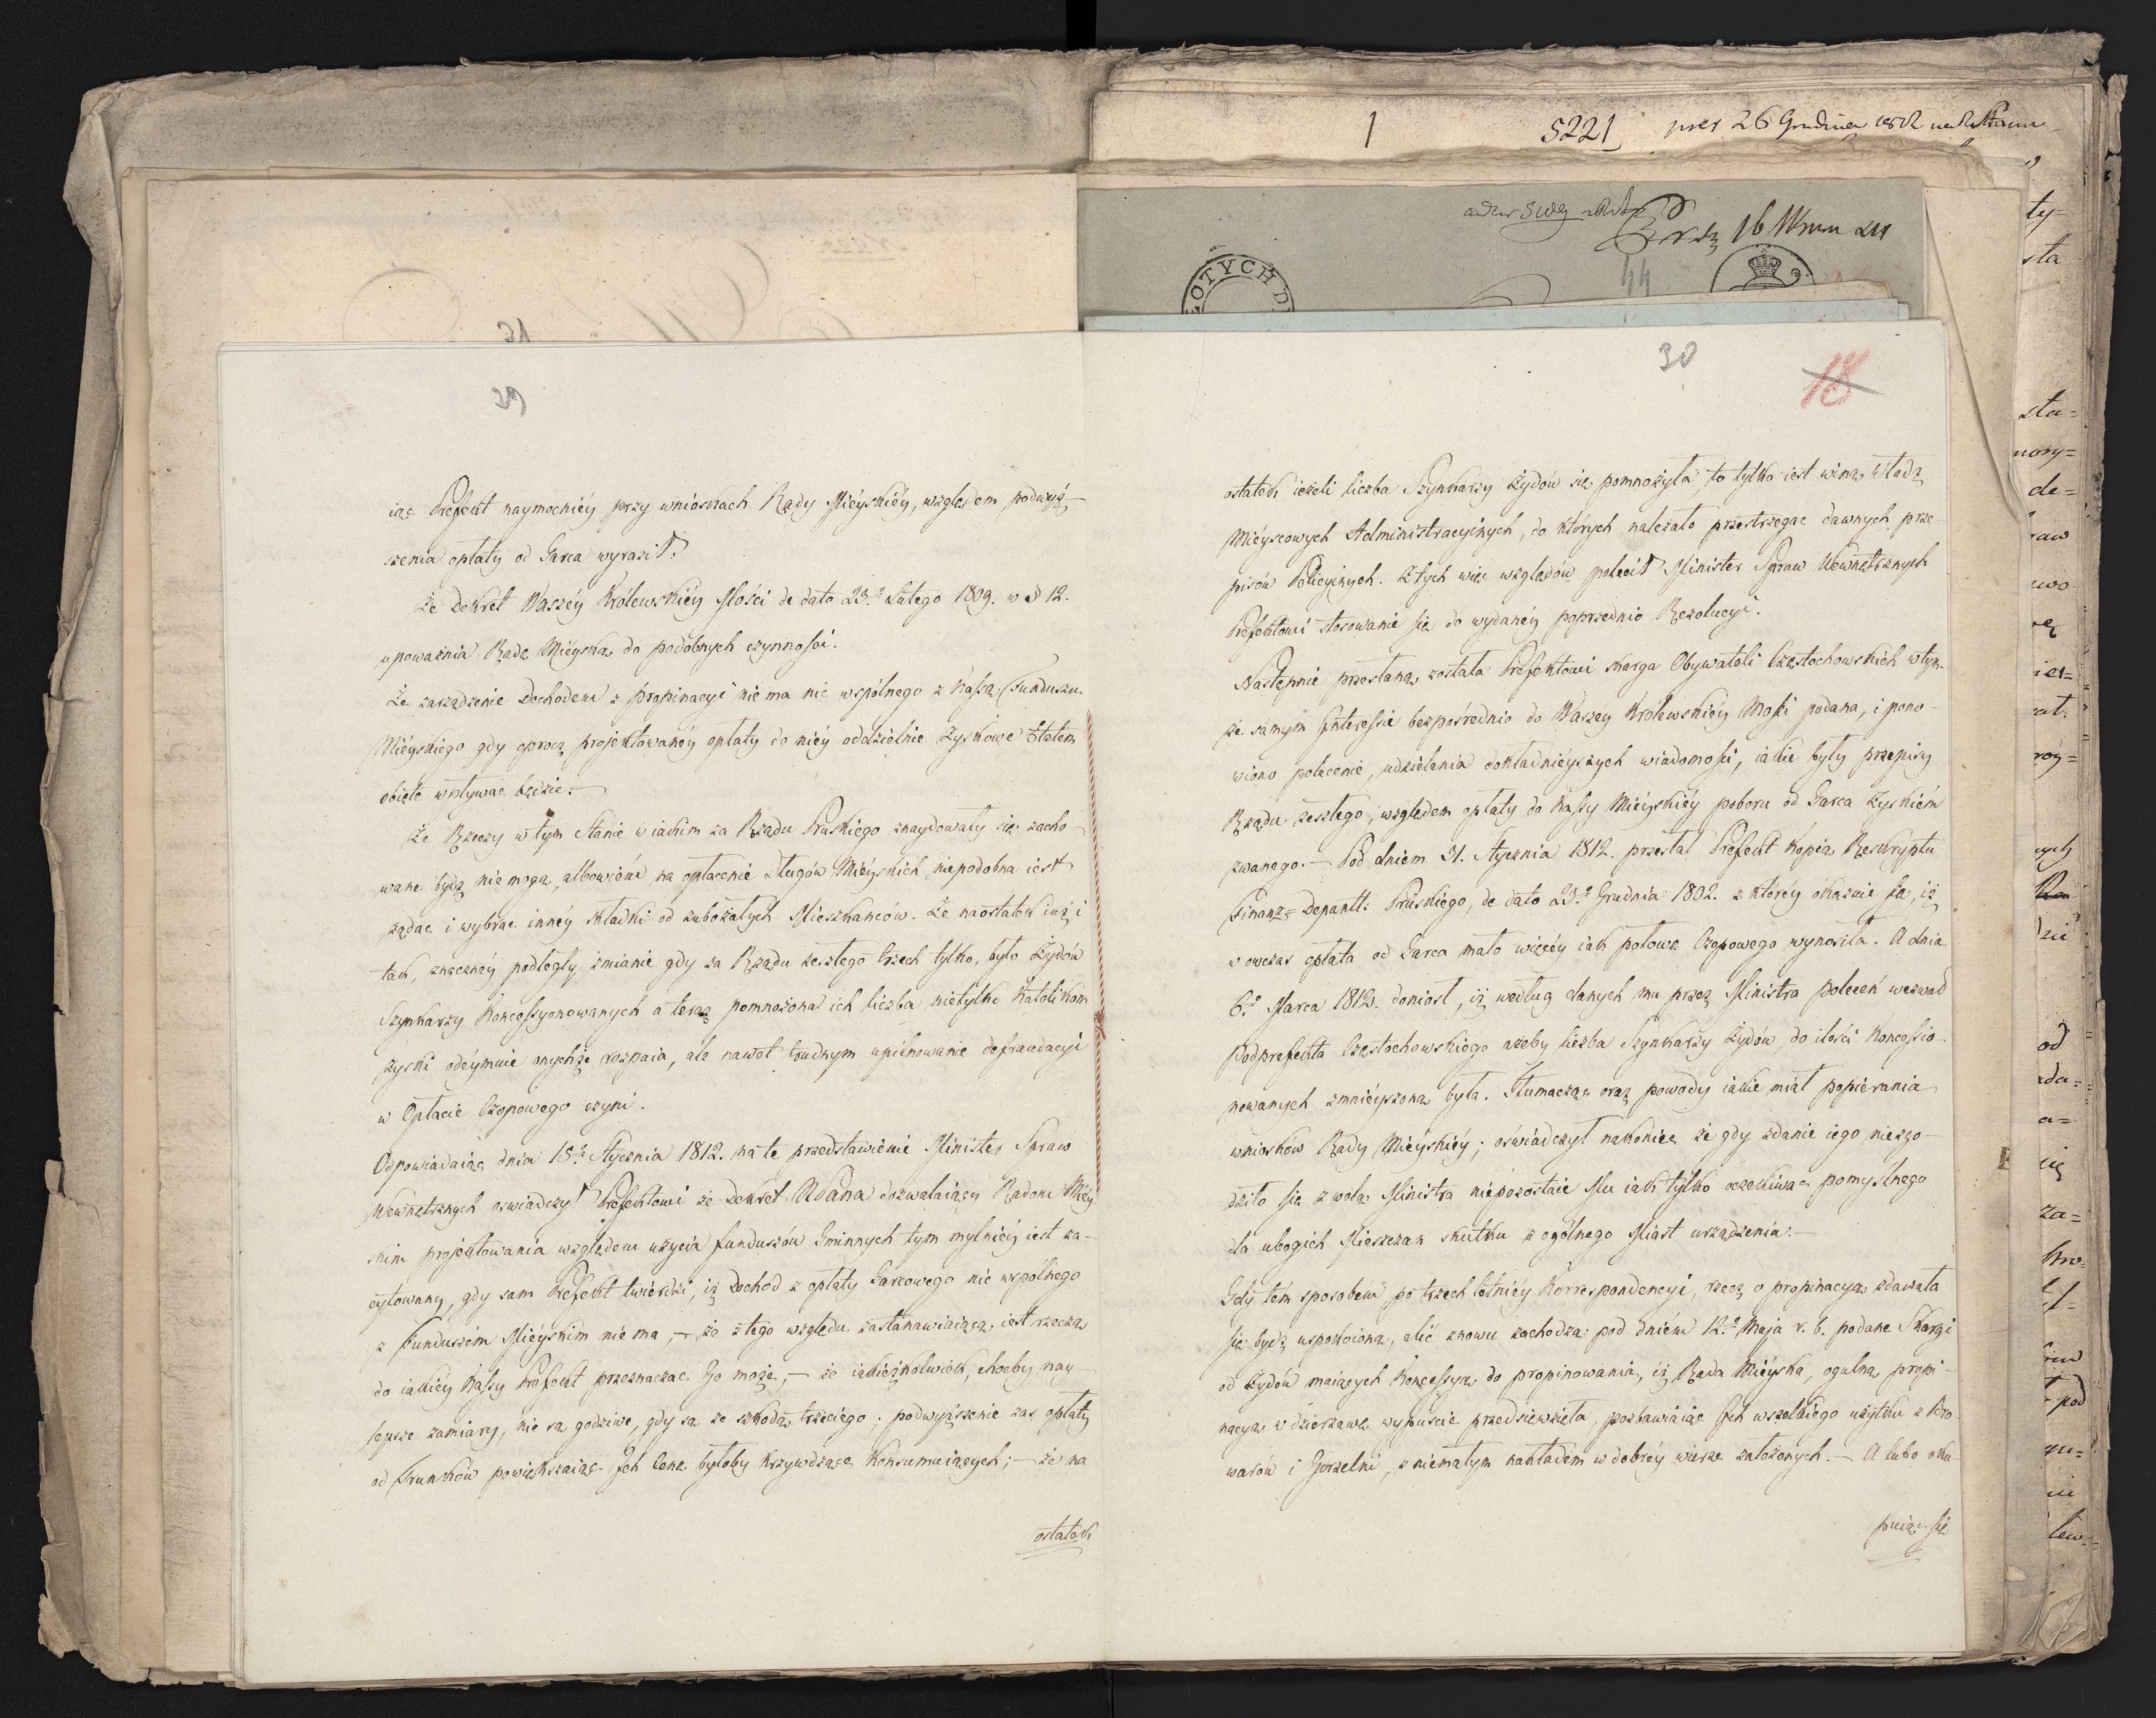 1
5221
16
44
31
29
iąc Prefekt naymocniéy przy wnioskach Rady Miéyskiéy, względem podwyż-
szenia opłaty od Garca wyraził.
Że Dekret Waszéy Królewskiéy Mości de dato 23.º Lutego 1809. w § 12.
upoważnia Radę Miéyską do podobnych czynności.
Że zarządzenie Dochodem z propinacyi nie ma nic wspólnego z Kassą Funduszu
Miéyskiego gdy oprócz projektowanéy opłaty do niéy oddzielnie Zyskowe Etatem
objęte wpływać będzie.—
Że Rzeczy w tym Stanie w iakim za Rządu Pruskiego znaydowały się zacho-
wane bydź nie mogą, albowiém na opłacenie Długów Miéyskich niepodobna iest
żądać i wybrać innéy składki od zubożałych Mieszkańców. Że naostatek iuż i
tak, znacznéy podległy zmianie gdy za Rządu zeszłego trzech tylko, było Żydów
Szynkarzy Koncessyonowanych a teraz pomnożona ich liczba nietylko Katolikom
zyski odéymuie onychże rozpaia, ale nawet trudnym upilnowanie defraudacyi
w Opłacie Czopowego czyni.
Odpowiadaiąc dnia 15.º Stycznia 1812. na te przedstawienie Minister Spraw
Wewnętrznych oswiadczył Prefektowi że Dekret Udana dozwalaiący Radom Miéy-
skim projektowania względem użycia funduszów Gminnych tym mylniéy iest za-
cytowany, gdy sam Prefekt twierdzi, iż Dochod z opłaty Garcowego nic wspólnego
z Funduszém Miéyskim nie ma,— że z tego względu zastanawiaiącą iest rzeczą
do iakiéy Kassy Prefekt przeznaczać Go może,— że iakieżkolwiek, choćby nay-
lepsze zamiary, nie są godziwe, gdy są ze szkodą trzeciego; podwyższenie zas opłaty
od Trunków powiększaiąc Ich Cenę byłoby krzywdzące Konsumuiących;— że na
ostatek
30
18
ostatek ieżeli liczba Szynkarzy Żydów się pomnożyła, to tylko iest winą Władz
Miéyscowych Administracyinych, do których należało przestrzegać dawnych prze-
pisów Policyinych. Z tych więc względów polecił Minister Spraw Wewnętrznych
Prefektowi stosowanie się do wydanéy poprzednio Rezolucyi.
Następnie przesłaną została Prefektowi skarga Obywateli Częstochowskich w tym-
że samym Interessie bezpośrednio do Waszey Królewskiéy Mości podana, i pono-
wiono polecenie, udzielenia dokładniéyszych wiadomości, iakie były przepisy
Rządu zeszłego, względem opłaty do Kassy Miéyskiéy poboru od Garca Zyskiém
zwanego.— Pod dniem 31. Stycznia 1812. przesłał Prefekt Kopią Reskryptu
Finanz-Depantt: Pruskiego, de dato 23.º Grudnia 1802. z któréy okazuie się, iż
w owczas opłata od Garca mało więcéy iak połowę Czopowego wynosiła. A dnia
6.º Marca 1812. doniosł, iż według danych mu przez Ministra poleceń wezwał
Podprefekta Częstochowskiego ażeby liczba Szynkarzy Żydów, do ilości Koncessio-
nowanych zmniéyszoną była. Tłumacząc oraz powody iakie miał popierania
wniosków Rady Miéyskiéy; oświadczył nakoniec że gdy zdanie iego niezgo-
dziło się z wolą Ministra niepozostaie Mu iak tylko oczekiwać pomyślnego
dla ubogich Mieszczan skutku z ogólnego Miast urządzenia.—
Gdy tém sposobem po trzech letniéy Korrespondencyi, rzecz o propinacyą zdawała
się bydź uspokoioną, alić znowu zachodzą pod dniem 12.º Maja r. b. podane Skargi
od Żydów maiących Koncessyą do propinowania, iż Rada Miéyska, ogulną propi-
nacyą w dzierzawę wypuścić przedsiewzięła, pozbawiaiąc Ich wszelkiego użytku z Bro
warów i Gorzelni, z niemałym nakładem w dobréy wierze założonych.— A lubo oku-
puiąc się